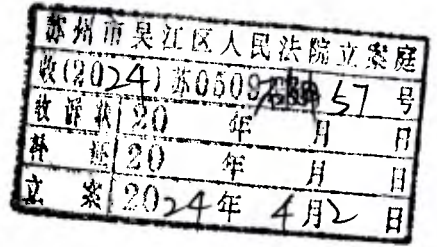 苏州市吴江区人民法院立案庭
收(2024)苏0509 57号
收诉状 20 年 月 日
补 20 年 月 日
立案 2024年4月2日